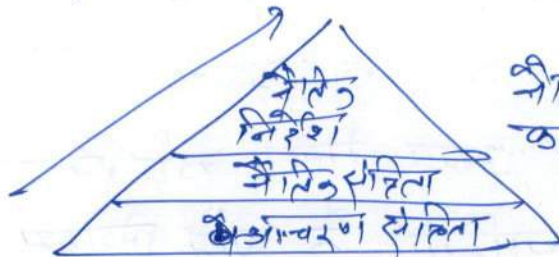 नैतिक
निर्देश
नैतिक संहिता
आचरण संहिता